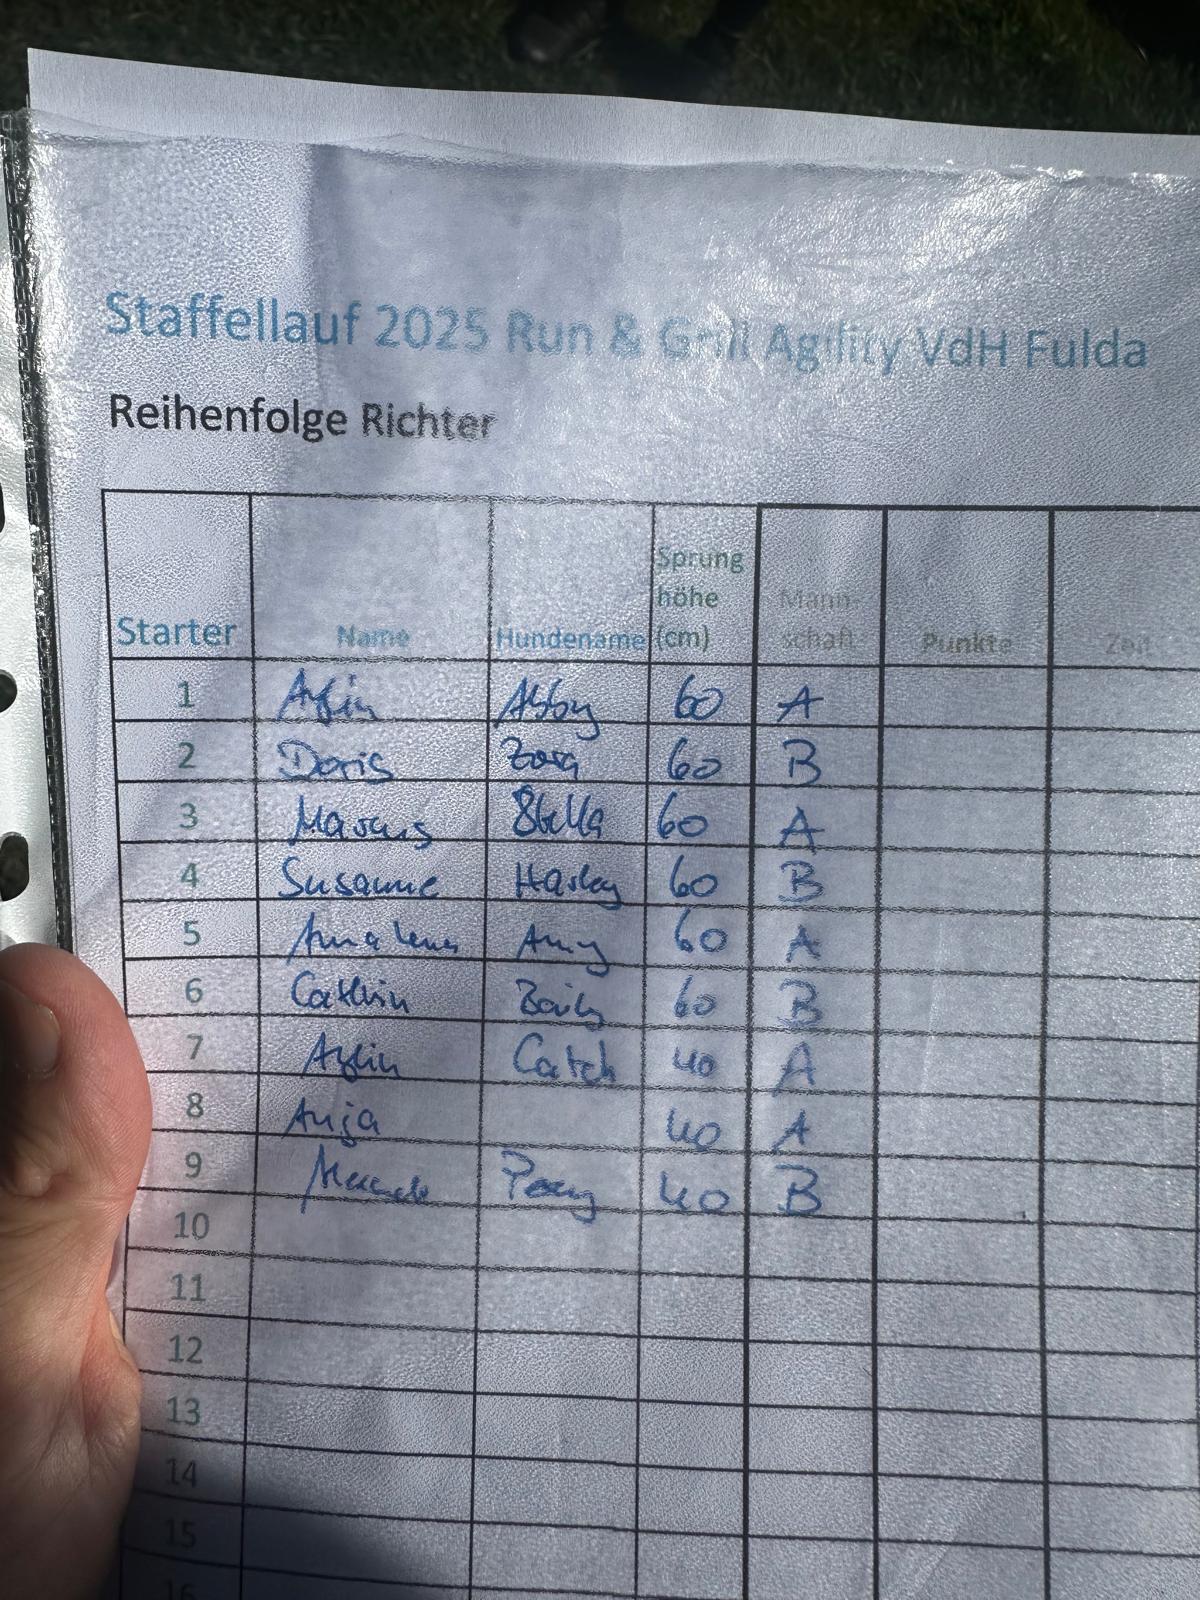 Staffellauf 2025 Run & Grill Agility VdH Fulda
Reihenfolge Richter
Starter Name Hundename Sprung höhe (cm) Mann-schaft Punkte Zeit
1 Aylin Abby 60 A
2 Doris Zora 60 B
3 Marcus Stella 60 A
4 Susanne Harley 60 B
5 Anna Lena Amy 60 A
6 Cathrin Baily 60 B
7 Aylin Catch 40 A
8 Anja 40 A
9 40 B
10
11
12
13
14
15
16